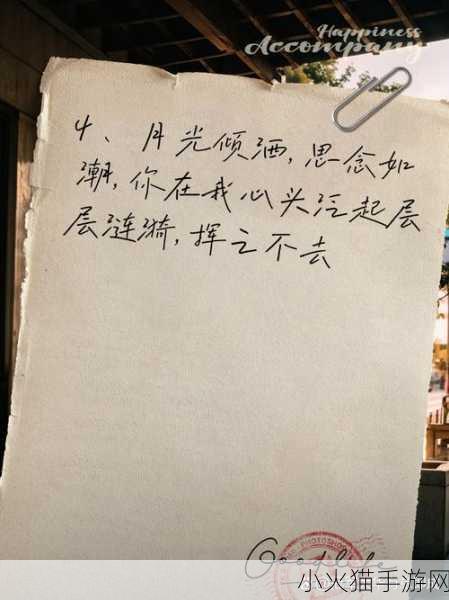 Happiness
Accompany
4、月光倾洒,思念如
潮,你在我心头泛起层
层涟漪,挥之不去
Good life
小火猫手游网